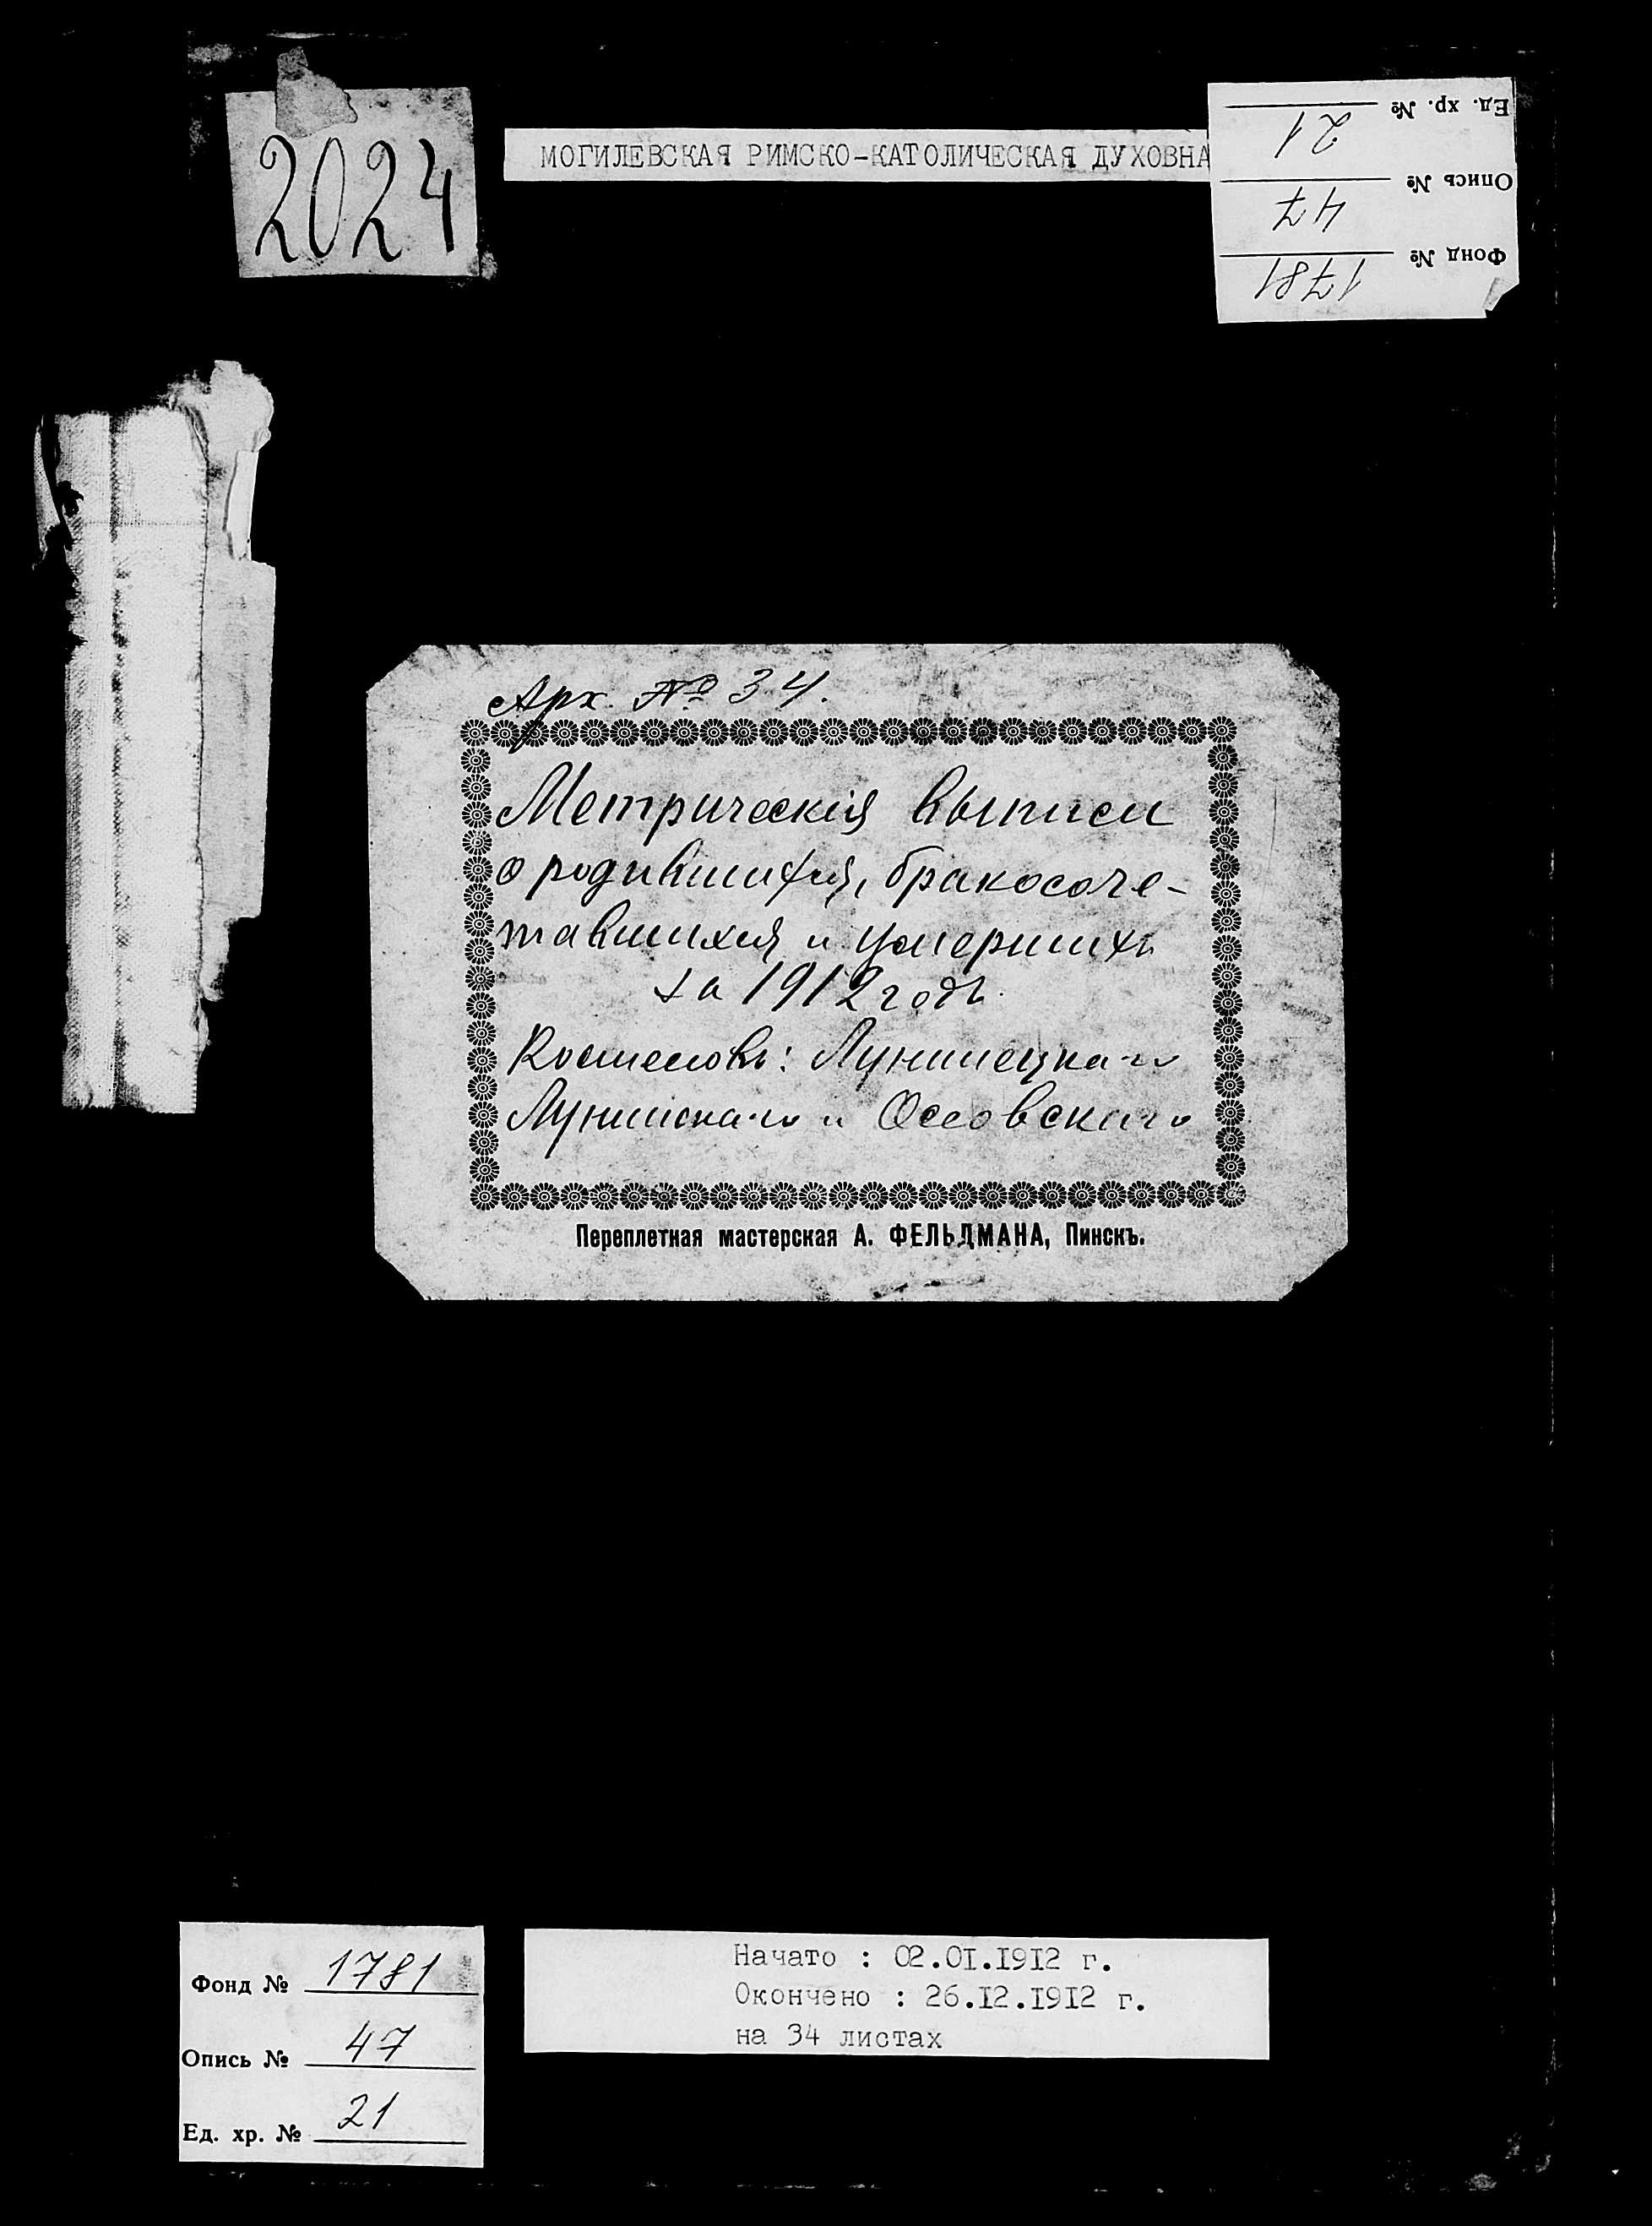 2024
МОГИЛЕВСКАЯ РИМСКО-КАТОЛИЧЕСКАЯ ДУХОВНА
Ед. хр. № 21
Опись № 47
Фонд № 1781
Арх. № 34.
Метрическія выписи
о родившихся, бракосоче-
тавшихся и умершихъ
за 1912 годъ.
Костеловъ: Лунинецкаго
Лунинскаго и Оссовскаго
Переплетная мастерская А. ФЕЛЬДМАНА, Пинскъ.
Фонд № 1781
Опись № 47
Ед. хр. № 21
Начато : 02.01.1912 г.
Окончено : 26.12.1912 г.
на 34 листах